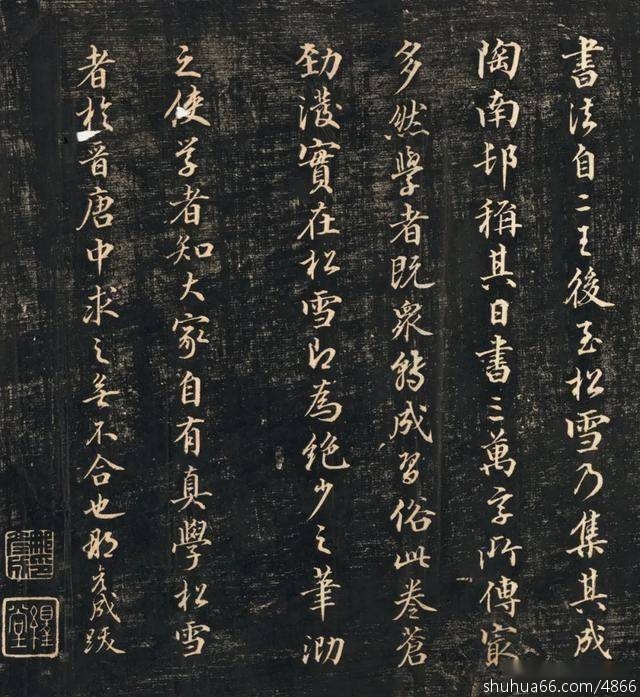 書法自二王後至松雪乃集其成
陶南邨稱其日書三萬字所傳寂
多然學者既衆轉成習俗此卷蒼
勁濃實在松雪即為絶少之筆泐
之使学者知大家自有真學松雪
者於晋唐中求之無不合也那彦成跋
shuhua66.com/4866